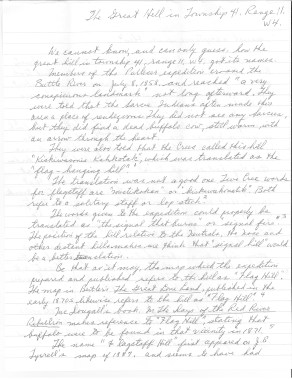 The Great Hill in Township 41, Range 11,
W4.
We cannot know, and can only guess, how the
great hill in township 41, range 11, W4, got its names.
Members of the Palliser expedition crossed the
Battle River on July 8, 1858, and reached "a very
conspicuous landmark" not long afterward. They
were told that the Sarcee Indians often made this
area a place of rendezvous. They did not see any Sarcees,
but they did find a dead buffalo cow, still warm with
an arrow through the heart.
They were also told that the Cree called this hill
which was translated as the
"flag-hanging hill".
The translation was not a good one. Two Cree words
for flagstaff are or Both
refer to a solitary staff or log stick.
The words given to the expedition could properly be
translated as "the signal that burns" or "signal fire".
The position of the hill relative to the and
other distant hills makes me think that "signal hill" would
be a better translation.
Be that as it may, the map which the expedition
prepared and published refers to the hill as "Flag Hill".
The map in Butler's The Great Lone Land, published in the
early 1870s likewise refers to the hill as "Flag Hill".
McDougall's book In The Days of the Red River
Rebellion makes reference to "Flag Hill", stating that
buffalo were to be found in that vicinity in 1871.
The name "Flagstaff Hill" first appeared on J.B.
Tyrrell's map of 1887, and seems to have had